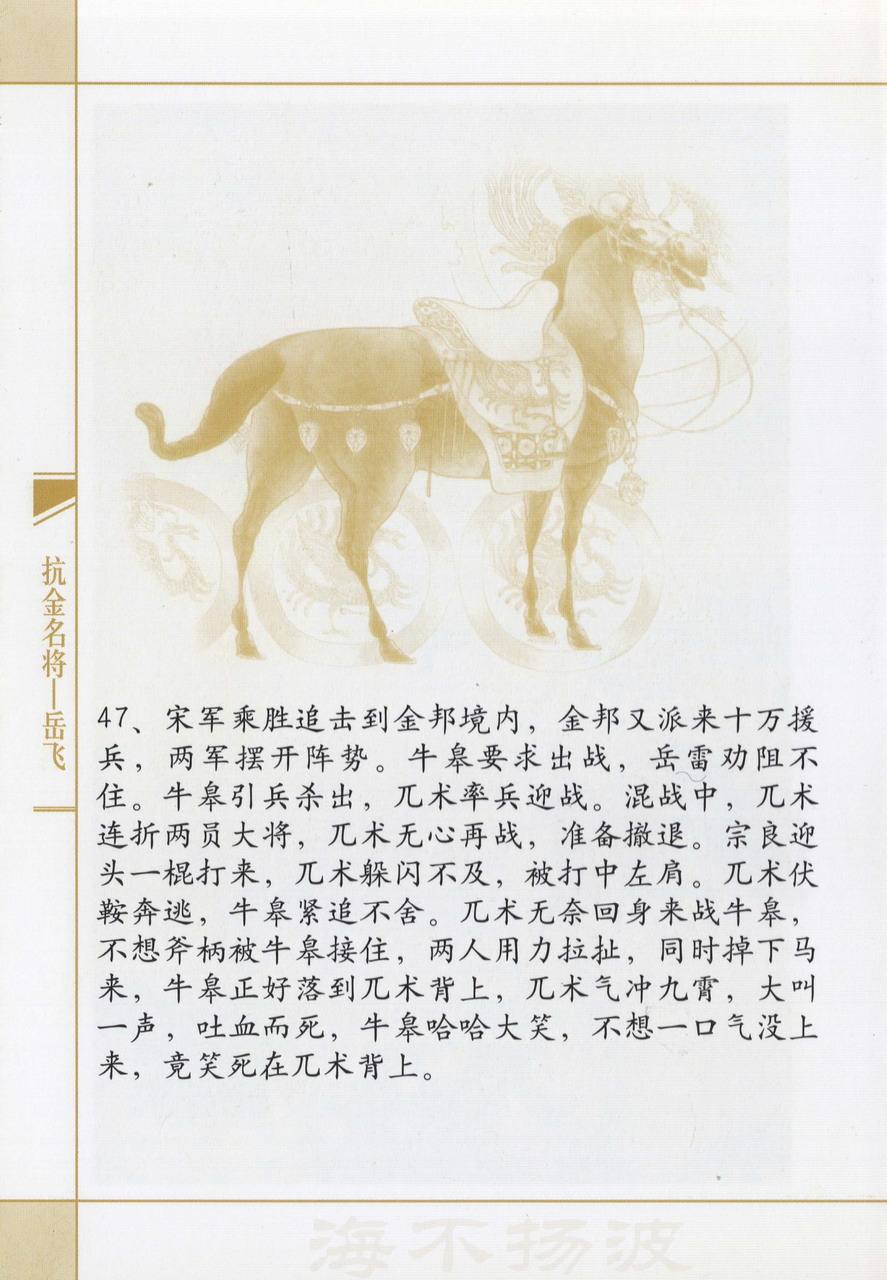 抗金名将—岳飞
47、宋军乘胜追击到金邦境内，金邦又派来十万援
兵，两军摆开阵势。牛皋要求出战，岳雷劝阻不
住。牛皋引兵杀出，兀术率兵迎战。混战中，兀术
连折两员大将，兀术无心再战，准备撤退。宗良迎
头一棍打来，兀术躲闪不及，被打中左肩。兀术伏
鞍奔逃，牛皋紧追不舍。兀术无奈回身来战牛皋，
不想斧柄被牛皋接住，两人用力拉扯，同时掉下马
来，牛皋正好落到兀术背上，兀术气冲九霄，大叫
一声，吐血而死，牛皋哈哈大笑，不想一口气没上
来，竟笑死在兀术背上。
海不扬波